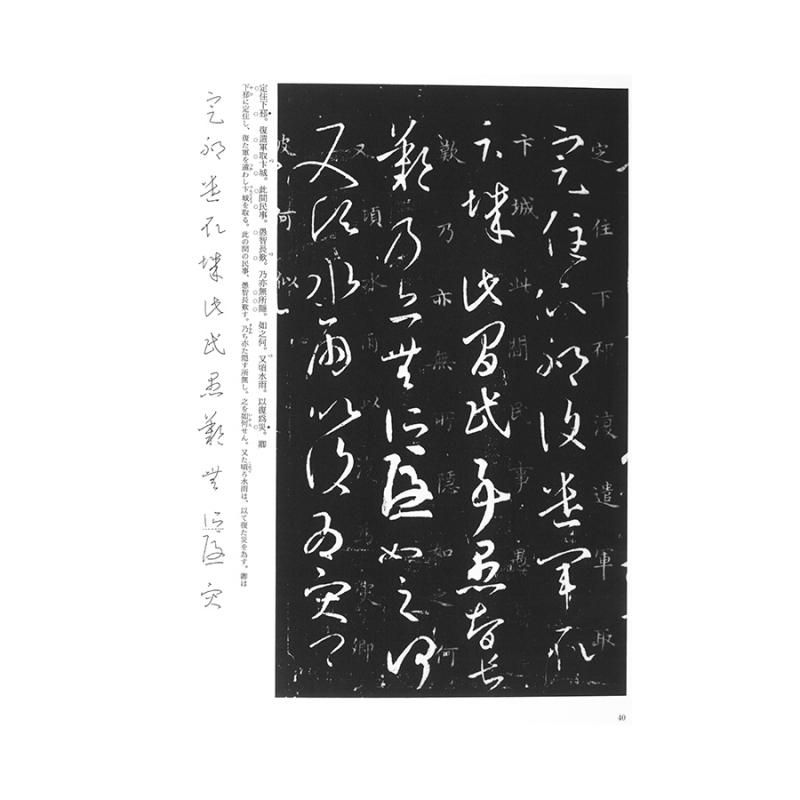 定住下邳復遣軍取
定住下邳復遣軍取
卞城此間民事愚
卞城此間民事愚智長
歎乃亦無所隱如之何
歎乃亦無所隱如之何
又頃水雨以復為災卿
又頃水雨以復為災卿
彼何似
定住下邳。復遣軍取卞城。此間民事。愚智長歎。乃亦無所隱。如之何。又頃水雨。以復爲災。卿
下邳に定住し、復た軍を遣わし卞城を取る。此の間の民事、愚智長歎す。乃ち亦た隠す所無し。之を如何せん。又た頃ろ水雨は、以て復た災を為す。卿は
定邳遣取城此民愚歎無所隱災
40